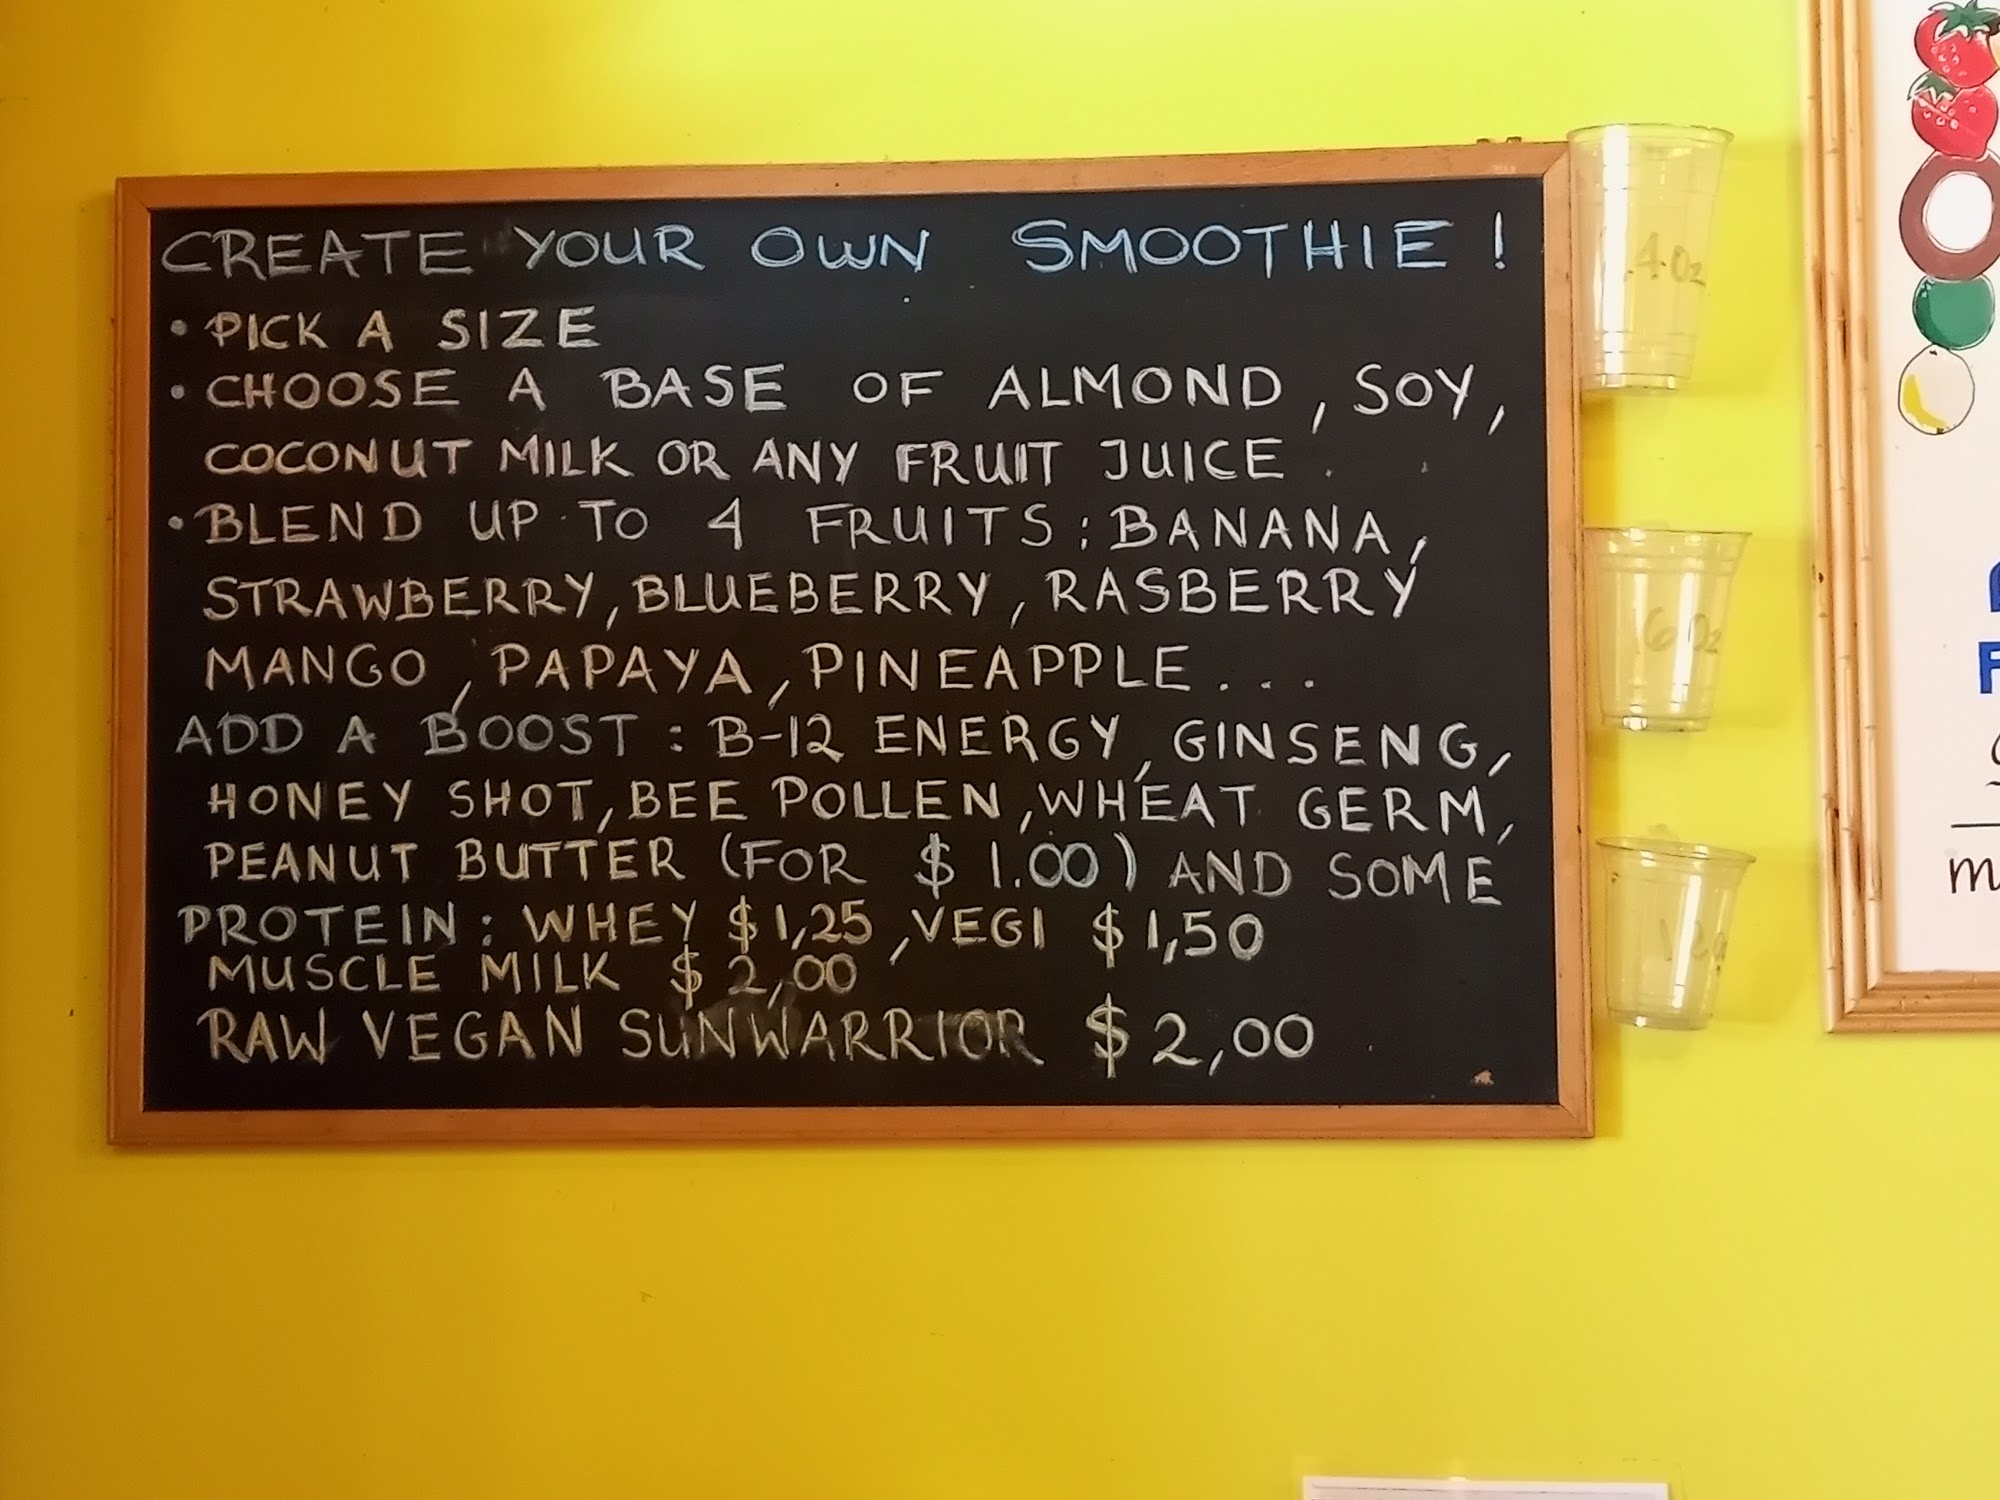 CREATE YOUR OWN SMOOTHIE!
• PICK A SIZE
• CHOOSE A BASE OF ALMOND, SOY,
COCONUT MILK OR ANY FRUIT JUICE.
• BLEND UP TO 4 FRUITS: BANANA,
STRAWBERRY, BLUEBERRY, RASBERRY
MANGO, PAPAYA, PINEAPPLE...
ADD A BOOST: B-12 ENERGY, GINSENG,
HONEY SHOT, BEE POLLEN, WHEAT GERM,
PEANUT BUTTER (FOR $1.00) AND SOME
PROTEIN: WHEY $1,25, VEGI $1,50
MUSCLE MILK $2,00
RAW VEGAN SUNWARRIOR $2,00
16 Oz